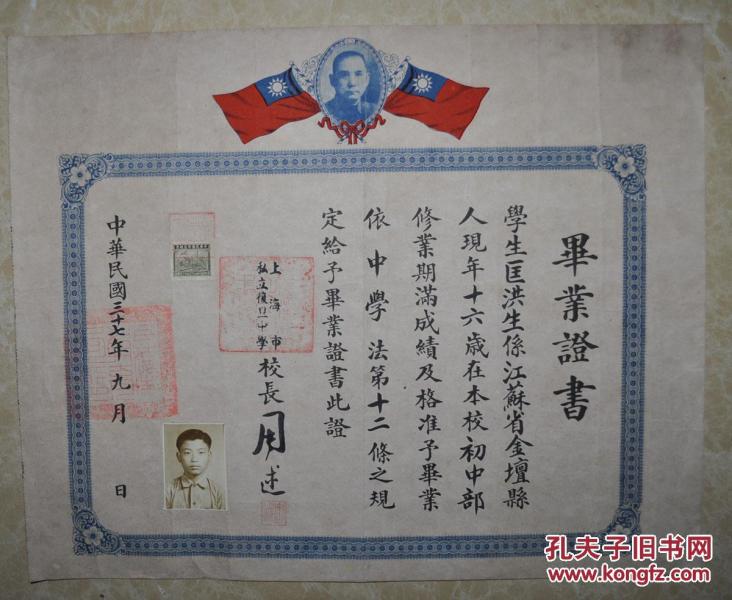 畢業證書
學生匡洪生係江蘇省金壇縣
人現年十六歲在本校初中部
修業期滿成績及格准予畢業
依中學法第十二條之規
定給予畢業證書此證
上海市
私立復旦中學
校長
中華民國三十七年九月 日
孔夫子旧书网
www.kongfz.com